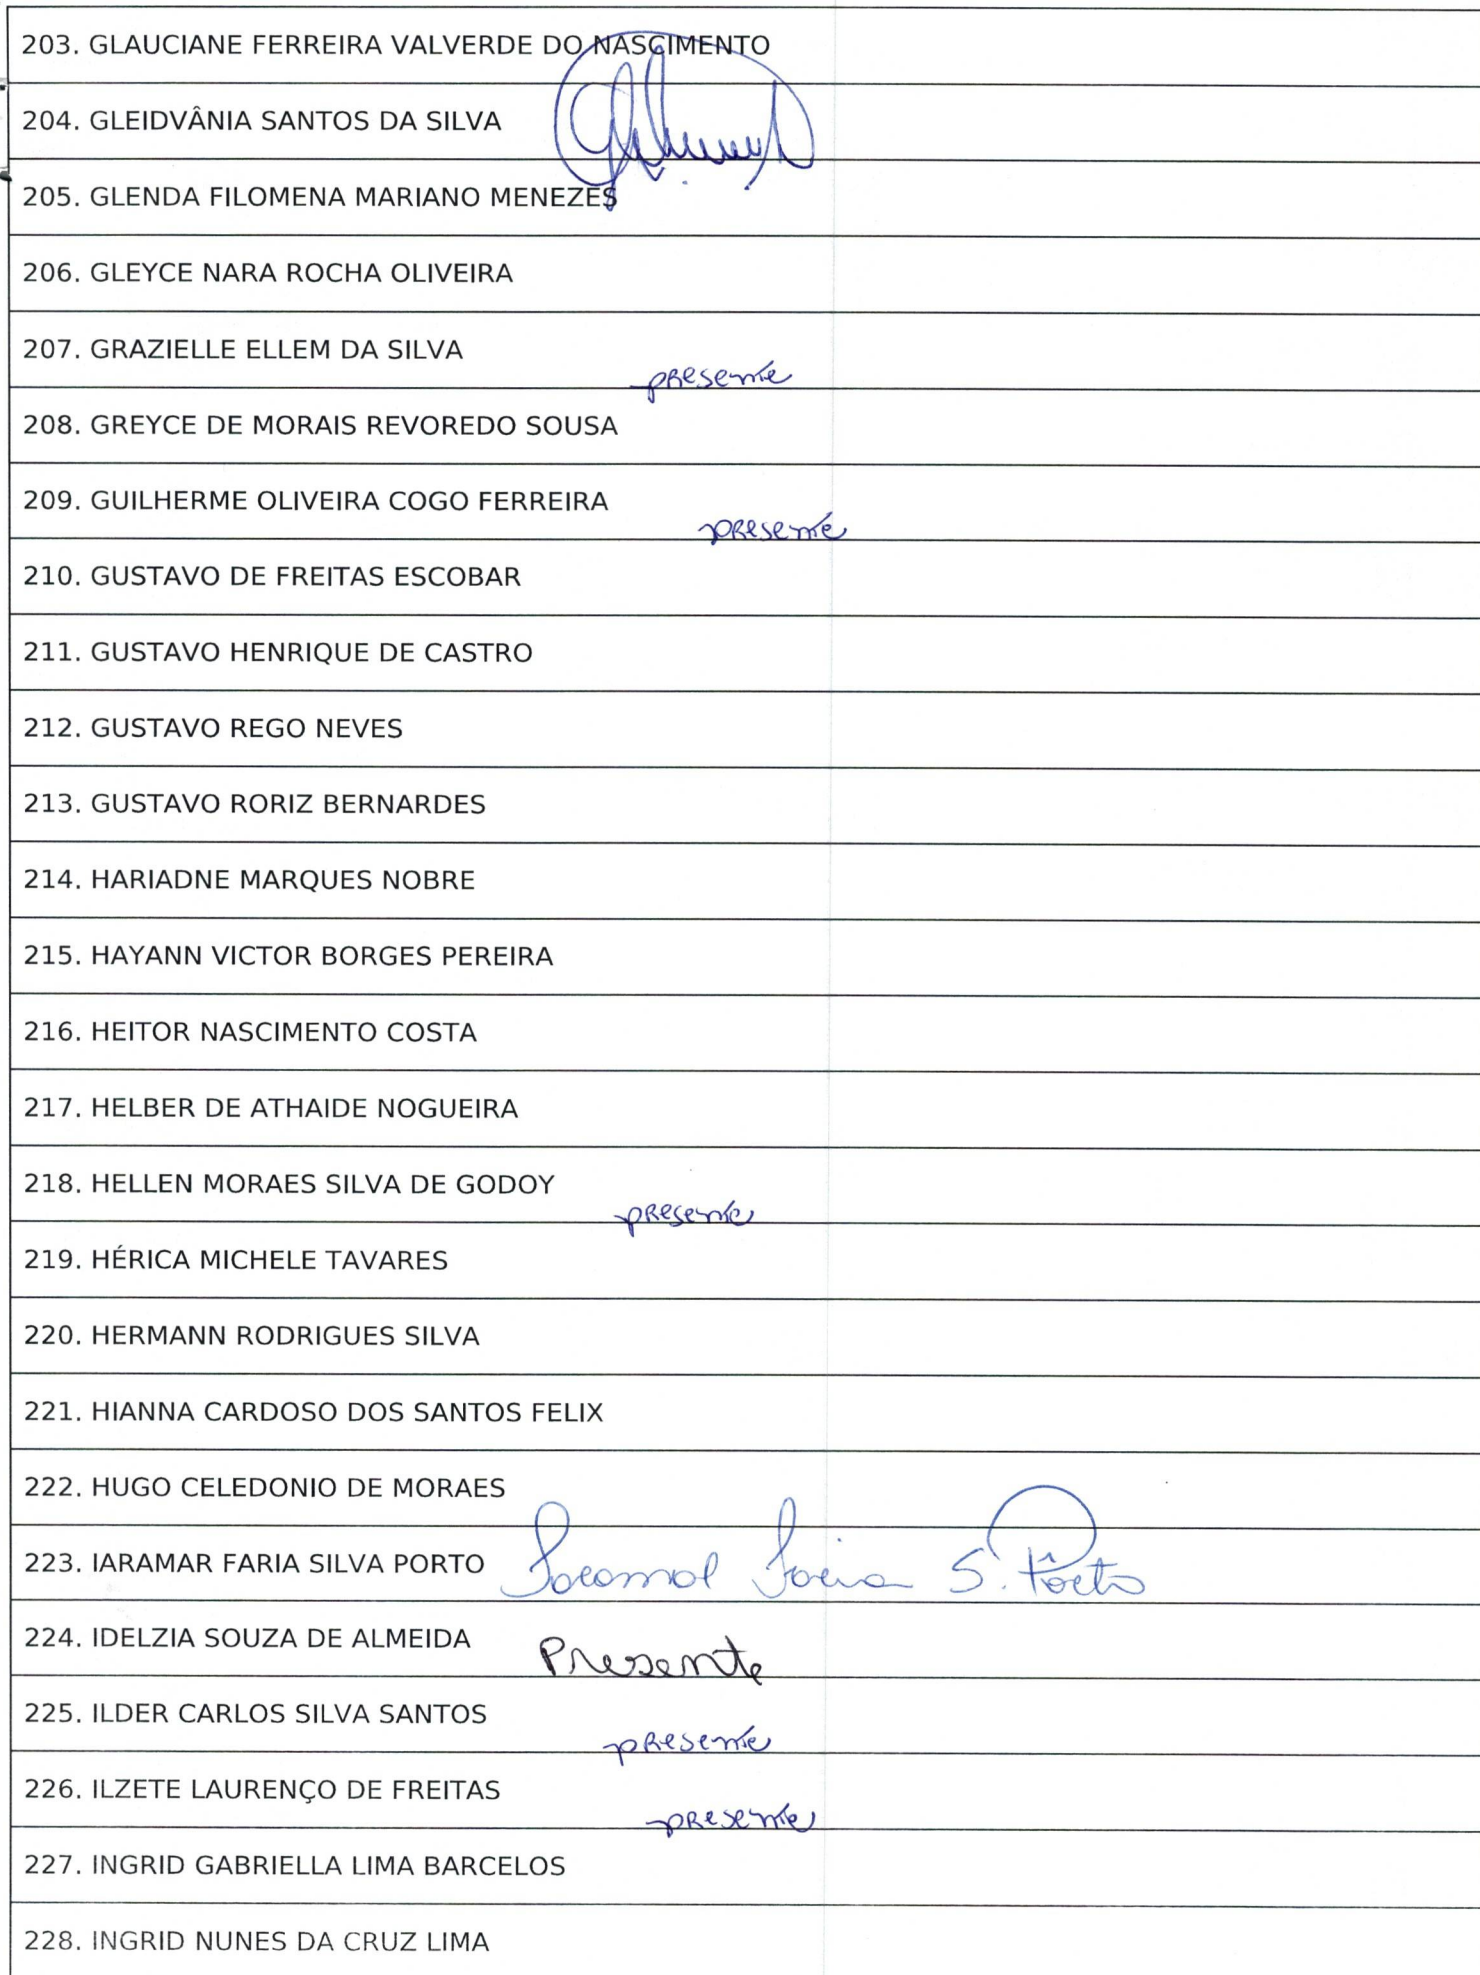 203. GLAUCIANE FERREIRA VALVERDE DO NASCIMENTO
204. GLEIDVÂNIA SANTOS DA SILVA
205. GLENDA FILOMENA MARIANO MENEZES
206. GLEYCE NARA ROCHA OLIVEIRA
207. GRAZIELLE ELLEM DA SILVA
presente
208. GREYCE DE MORAIS REVOREDO SOUSA
209. GUILHERME OLIVEIRA COGO FERREIRA
presente
210. GUSTAVO DE FREITAS ESCOBAR
211. GUSTAVO HENRIQUE DE CASTRO
212. GUSTAVO REGO NEVES
213. GUSTAVO RORIZ BERNARDES
214. HARIADNE MARQUES NOBRE
215. HAYANN VICTOR BORGES PEREIRA
216. HEITOR NASCIMENTO COSTA
217. HELBER DE ATHAIDE NOGUEIRA
218. HELLEN MORAES SILVA DE GODOY
presente
219. HÉRICA MICHELE TAVARES
220. HERMANN RODRIGUES SILVA
221. HIANNA CARDOSO DOS SANTOS FELIX
222. HUGO CELEDONIO DE MORAES
223. IARAMAR FARIA SILVA PORTO Faria S. Pôrto
224. IDELZIA SOUZA DE ALMEIDA Presente
225. ILDER CARLOS SILVA SANTOS
presente
226. ILZETE LAURENÇO DE FREITAS
presente
227. INGRID GABRIELLA LIMA BARCELOS
228. INGRID NUNES DA CRUZ LIMA